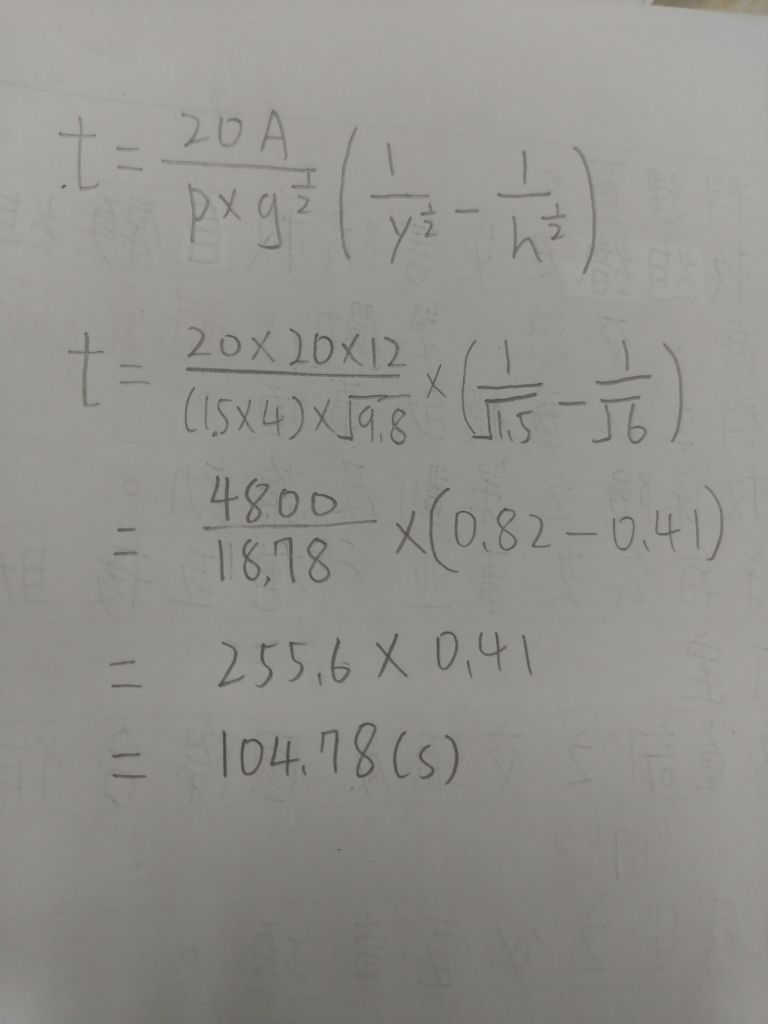 t = 20A / (p × g^(1/2)) (1/y^(1/2) − 1/h^(1/2))
t = 20×20×12 / ((1.5×4)×√9.8) × (1/√1.5 − 1/√6)
= 4800/18.78 × (0.82 − 0.41)
= 255.6 × 0.41
= 104.78 (s)